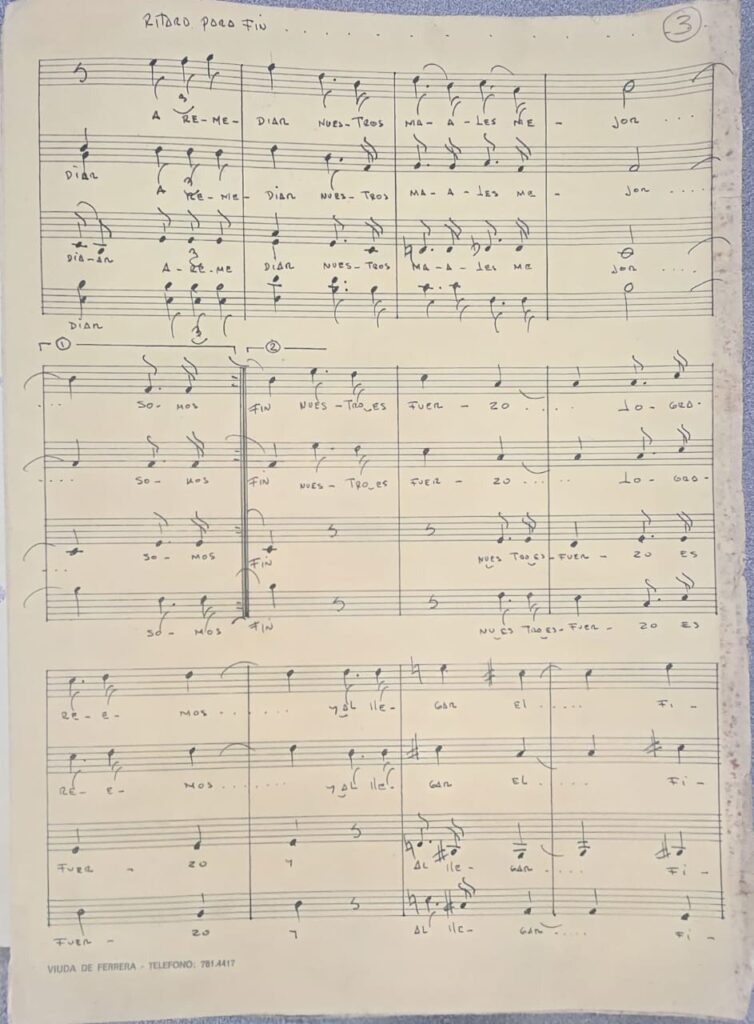 RITARD PARA FIN . . . . . . . . . . 3
3
A RE-ME- DIAR NUES-TROS MA-A-LES ME - JOR . . . .
DIAR A RE-ME- DIAR NUES-TROS MA-A-LES ME - JOR . . . .
3
DIA-AR A-RE-ME DIAR NUES-TROS MA-A-LES ME JOR . . . .
3
DIAR
3
1 2
. . . . SO-MOS FIN NUES-TRO_ES FUER - ZO . . . . LO-GRA-
. . . . SO-MOS FIN NUES-TRO_ES FUER - ZO . . . . LO-GRA-
. . . . SO-MOS FIN NUES TRO ES-FUER- ZO ES
SO-MOS FIN NUES TRO ES-FUER- ZO ES
RE-E- MOS . . . . . . Y AL LLE- GAR EL . . . . . FI-
RE-E- MOS . . . . . . Y AL LLE- GAR EL . . . . . FI-
FUER - ZO Y AL LLE- GAR . . . . . FI-
FUER - ZO Y AL LLE- GAR . . . . . FI-
VIUDA DE FERRERA - TELEFONO: 781.4417